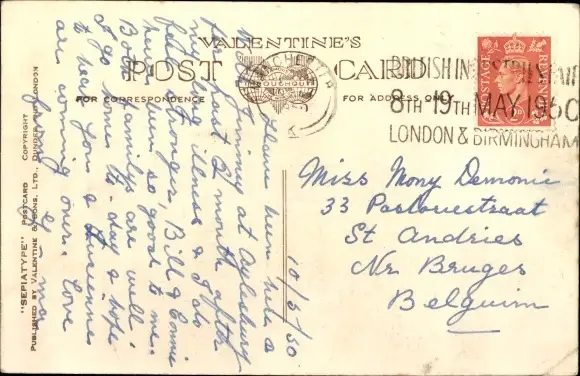 VALENTINE'S
POST CARD
FOR CORRESPONDENCE
FOR ADDRESS ONLY
BRITISH INDUSTRIES FAIR
8TH 19TH MAY 1950
LONDON & BIRMINGHAM
POSTAGE REVENUE
"SEPIATYPE" POSTCARD COPYRIGHT
PUBLISHED BY VALENTINE & SONS, LTD., DUNDEE AND LONDON
10/5/50
Have been here a
at Aylesbury
past 2 month after
my long illness & I do
feel stronger, Bill & Connie
have been so good to me.
Both familys are well.
I go home to-day & hope
to hear you & Lucienne
are coming over. Love
from
Miss Mony Demonie
33 Pastoriestraat
St Andries
Nr Bruges
Belguim